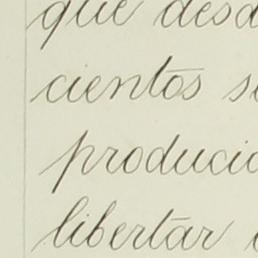 que desd
cientos s
produci
libertar